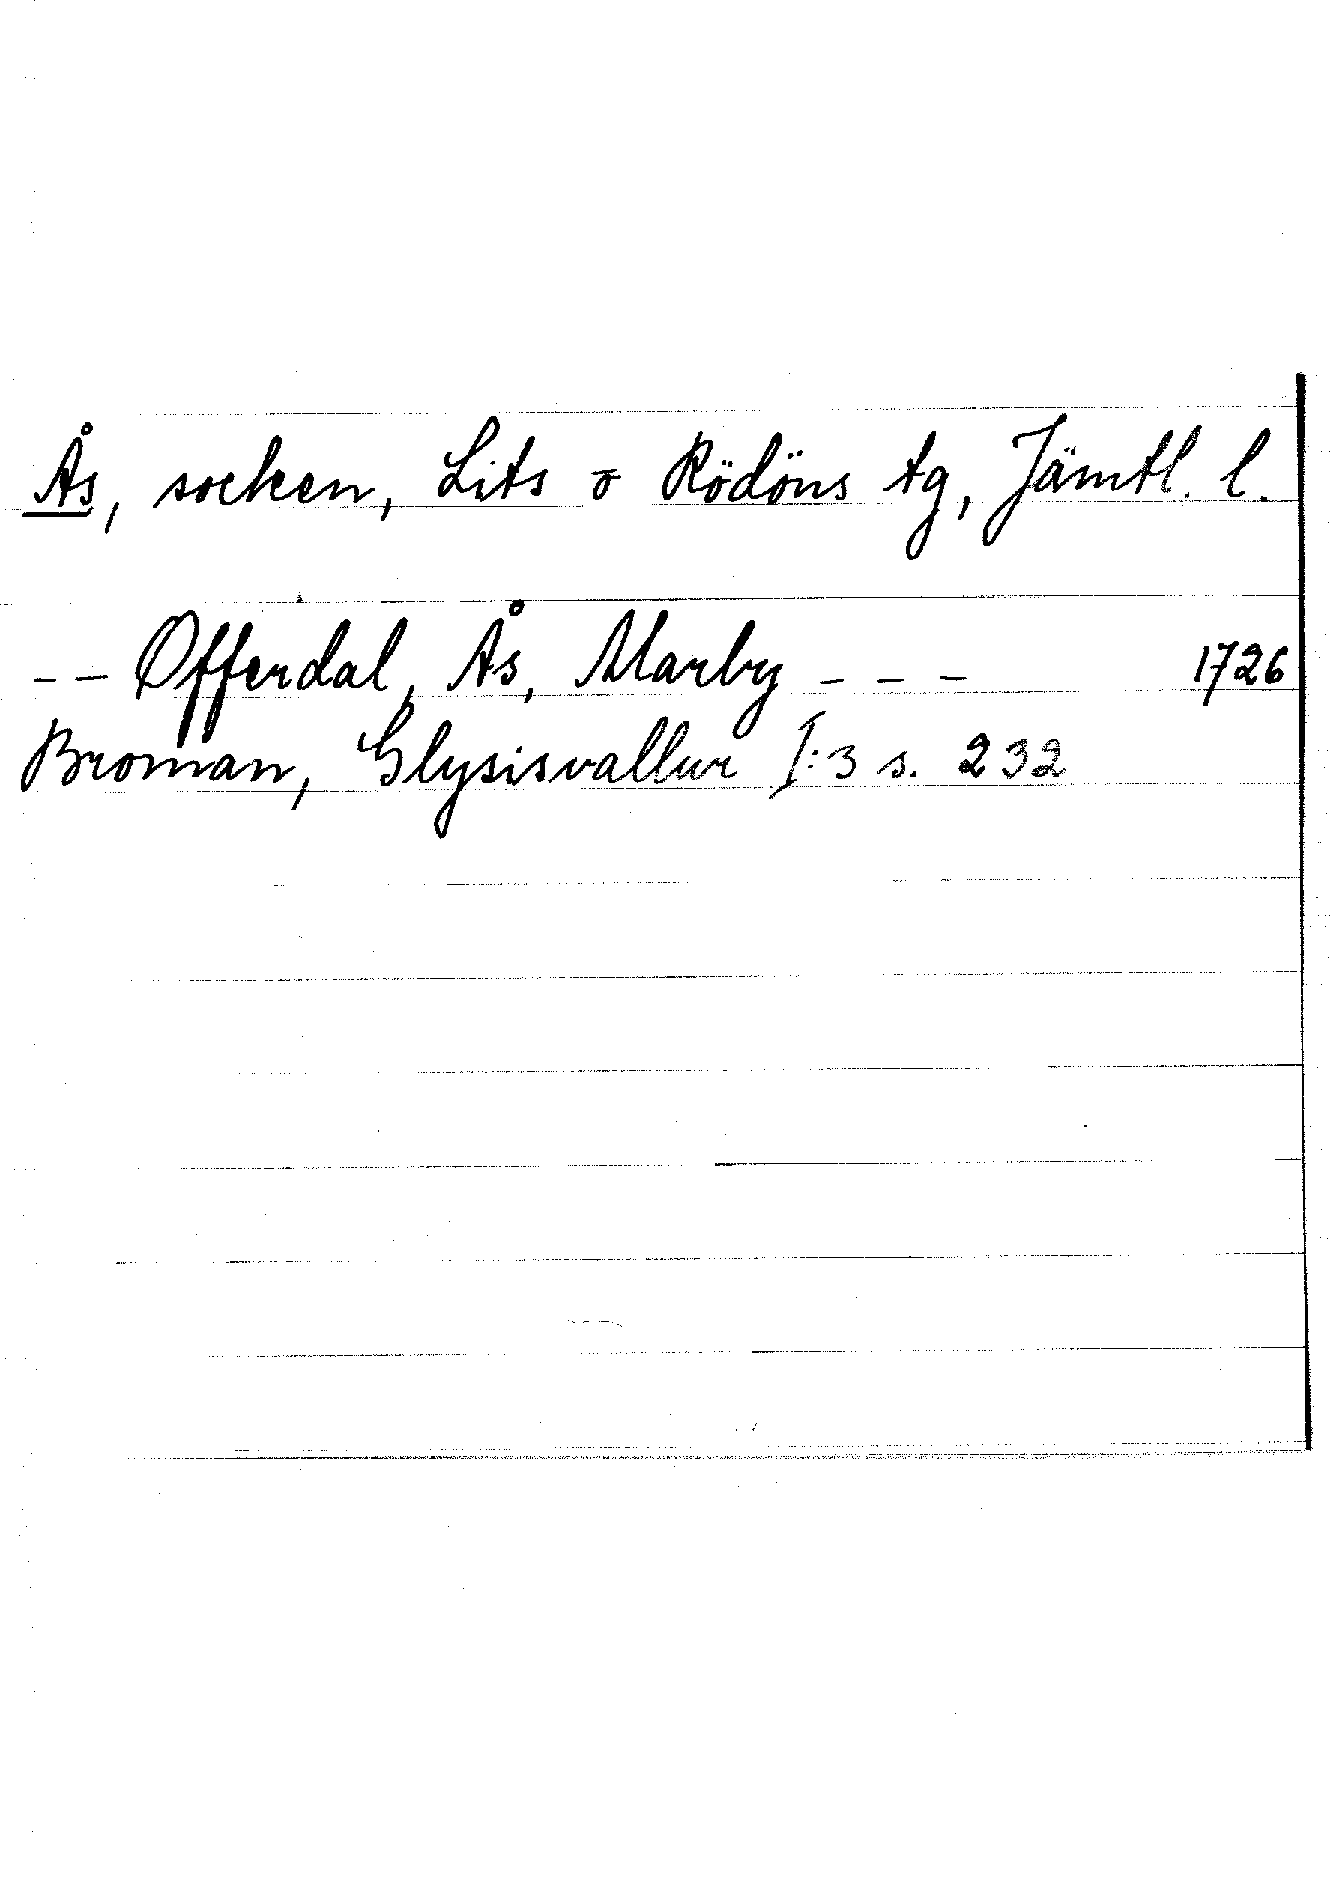 Ås, socken, Lits o Rödöns tg, Jämtl. l.
-- Offerdal, Ås, Marby --- 1726
Broman, Glysisvallur I:3 s. 232